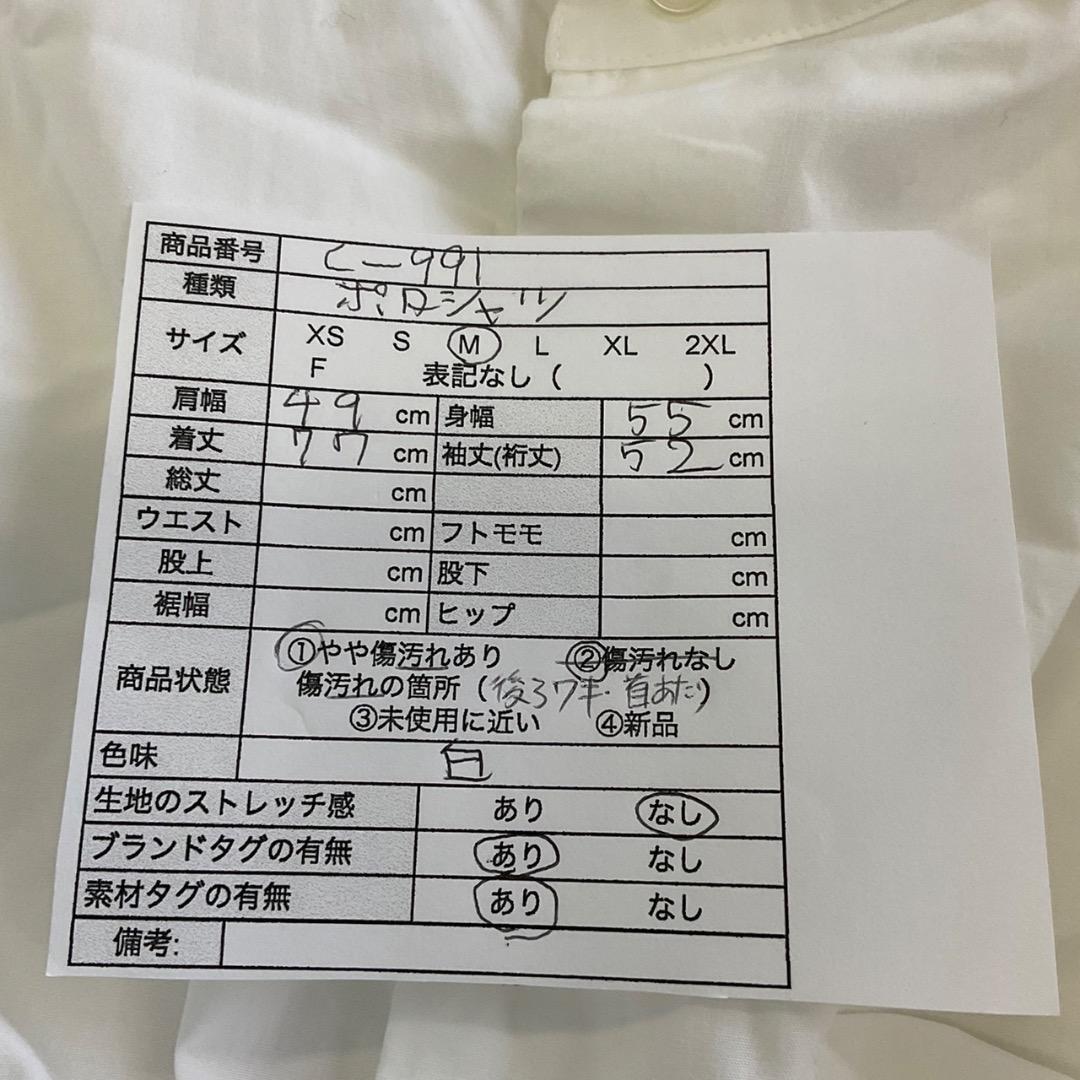 商品番号 C-991
種類 ポロシャツ
サイズ XS S M L XL 2XL
F 表記なし ( )
肩幅 49 cm 身幅 55 cm
着丈 77 cm 袖丈(裄丈) 52 cm
総丈 cm
ウエスト cm フトモモ cm
股上 cm 股下 cm
裾幅 cm ヒップ cm
商品状態 ①やや傷汚れあり ②傷汚れなし
傷汚れの箇所 (後ろワキ・首あたり)
③未使用に近い ④新品
色味 白
生地のストレッチ感 あり なし
ブランドタグの有無 あり なし
素材タグの有無 あり なし
備考: